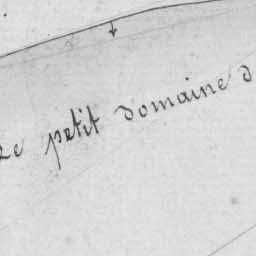 Le petit domaine d